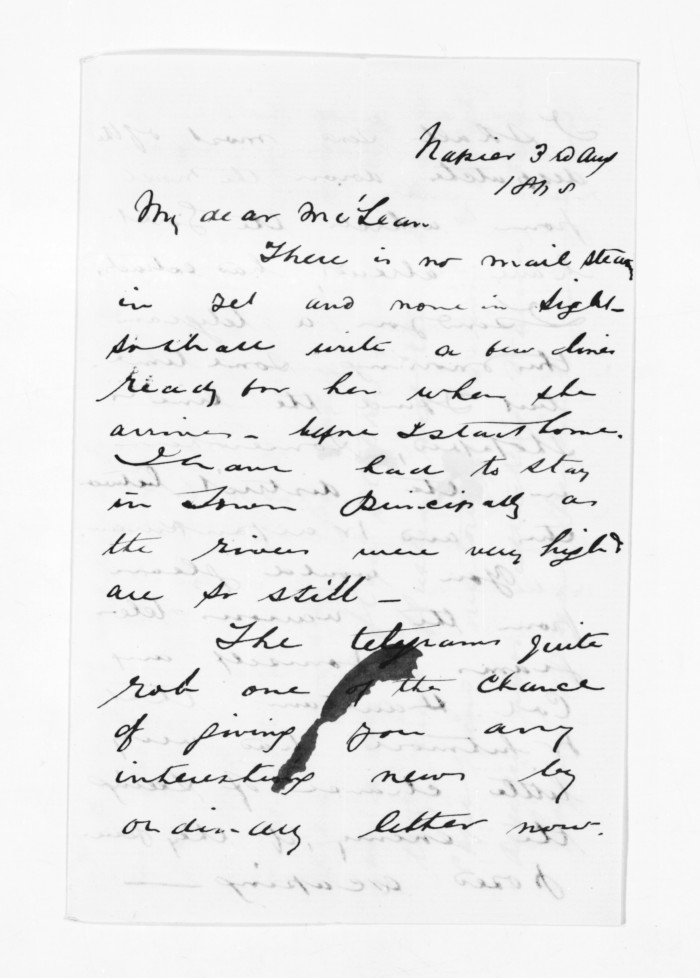 Napier 3rd Aug
My dear McLean
There is no mail steamer
in yet and none in sight -
so shall write a few lines
ready for her when she
arrives - before I start home.
I have had to stay
in Town principally as
the rivers were very high &
are so still -
The telegrams quite
rob one of the chance
of giving you any
interesting news by
ordinary letter now.